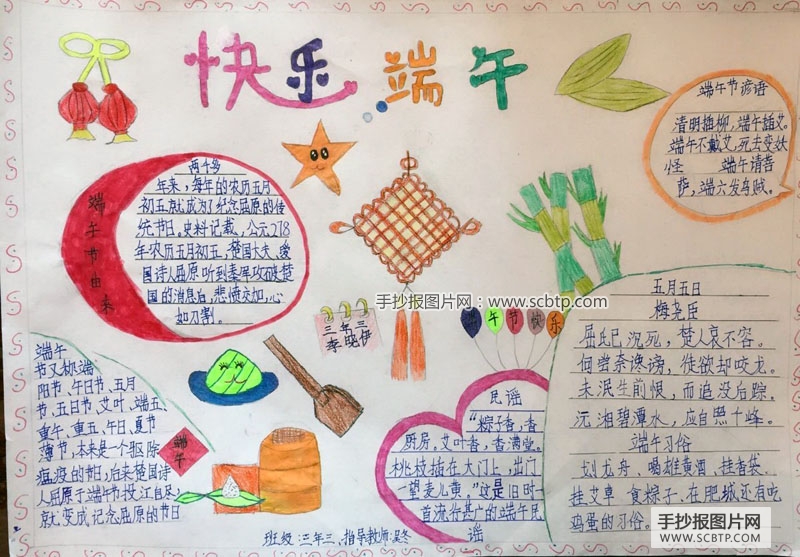 快乐端午
端午节由来
两千多
年来，每年的农历五月
初五就成为了纪念屈原的传
统节日，史料记载，公元278
年农历五月初五，楚国大夫、爱
国诗人屈原听到秦军攻破楚
国的消息后，悲愤交加，心
如刀割。
端午节谚语
清明插柳，端午插艾。
端午不戴艾，死去变妖
怪 端午请菩
萨，端六发乌贼。
手抄报图片网：www.scbtp.com
三年三
李晓伊
端午节快乐
五月五日
梅尧臣
屈氏已沉死，楚人哀不容。
何尝奈谗谤，徒欲却蛟龙。
未泯生前恨，而追没后踪。
沅湘碧潭水，应自照千峰。
端午习俗
划龙舟、喝雄黄酒、挂香袋、
挂艾草 食粽子、在肥城还有吃
鸡蛋的习俗。
端午
节又称端
阳节、午日节、五月
节、五日节、艾叶、端五、
重午、重五、午日、夏节
薄节，本来是一个驱除
瘟疫的节日，后来楚国诗
人屈原于端午节投江自尽，
就变成记念屈原的节日
端午
民谣
“粽子香，香
厨房，艾叶香，香满堂。
桃枝插在大门上，出门
一望麦儿黄。”这是旧时
首流行甚广的端午民
谣
班级：三年三、指导教师：吴冬
手抄报图片网
WWW.SCBTP.COM